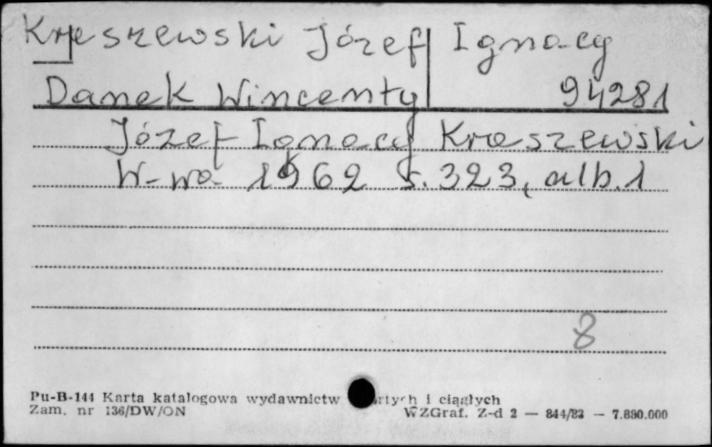 Kraszewski Józef Ignacy
Danek Wincenty 94281
Józef Ignacy Kraszewski
W-wa 1962 s. 323, alb. 1
8
Pu-B-144 Karta katalogowa wydawnictw zwartych i ciągłych
Zam. nr 136/DW/ON WZGraf. Z-d 2 — 844/82 — 7.890.000